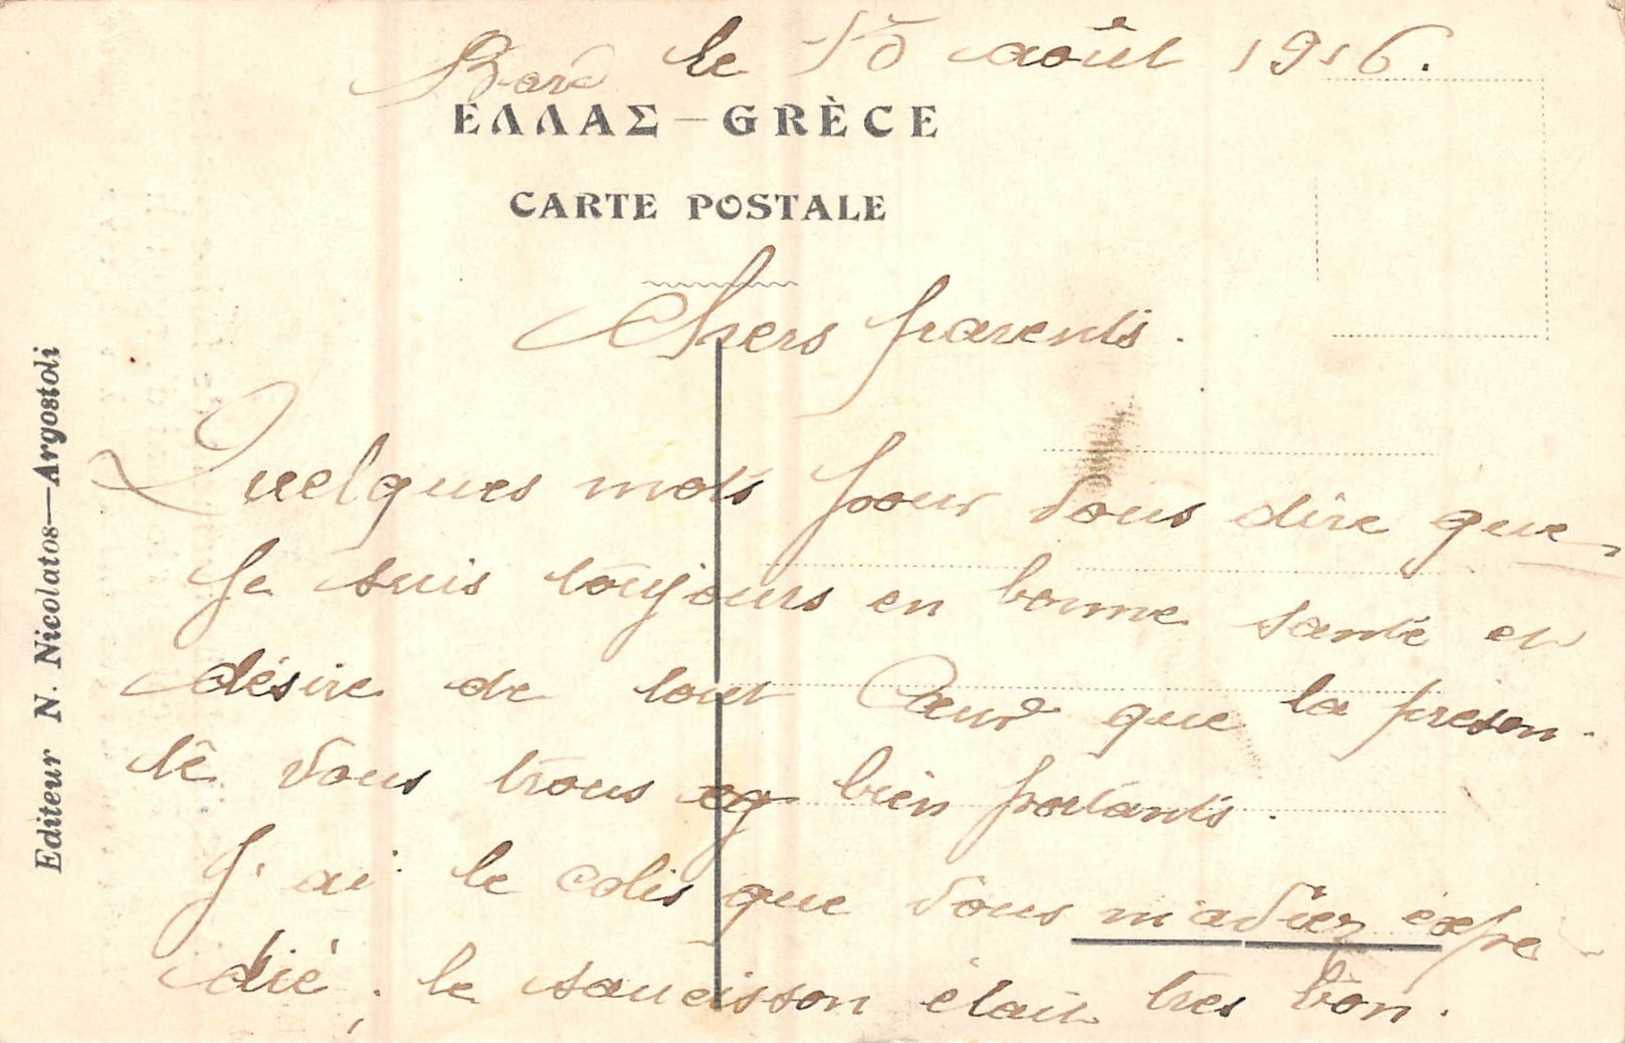 le 15 août 1916.
ΕΛΛΑΣ — GRÈCE
CARTE POSTALE
Chers parents.
Quelques mots pour vous dire que
Je suis toujours en bonne santé et
désire de tout Cœur que la presen-
te vous trouve bien portants.
J'ai le colis que vous m'aviez expe-
dié, le saucisson était tres bon.
Editeur N. Nicolatos—Argostoli